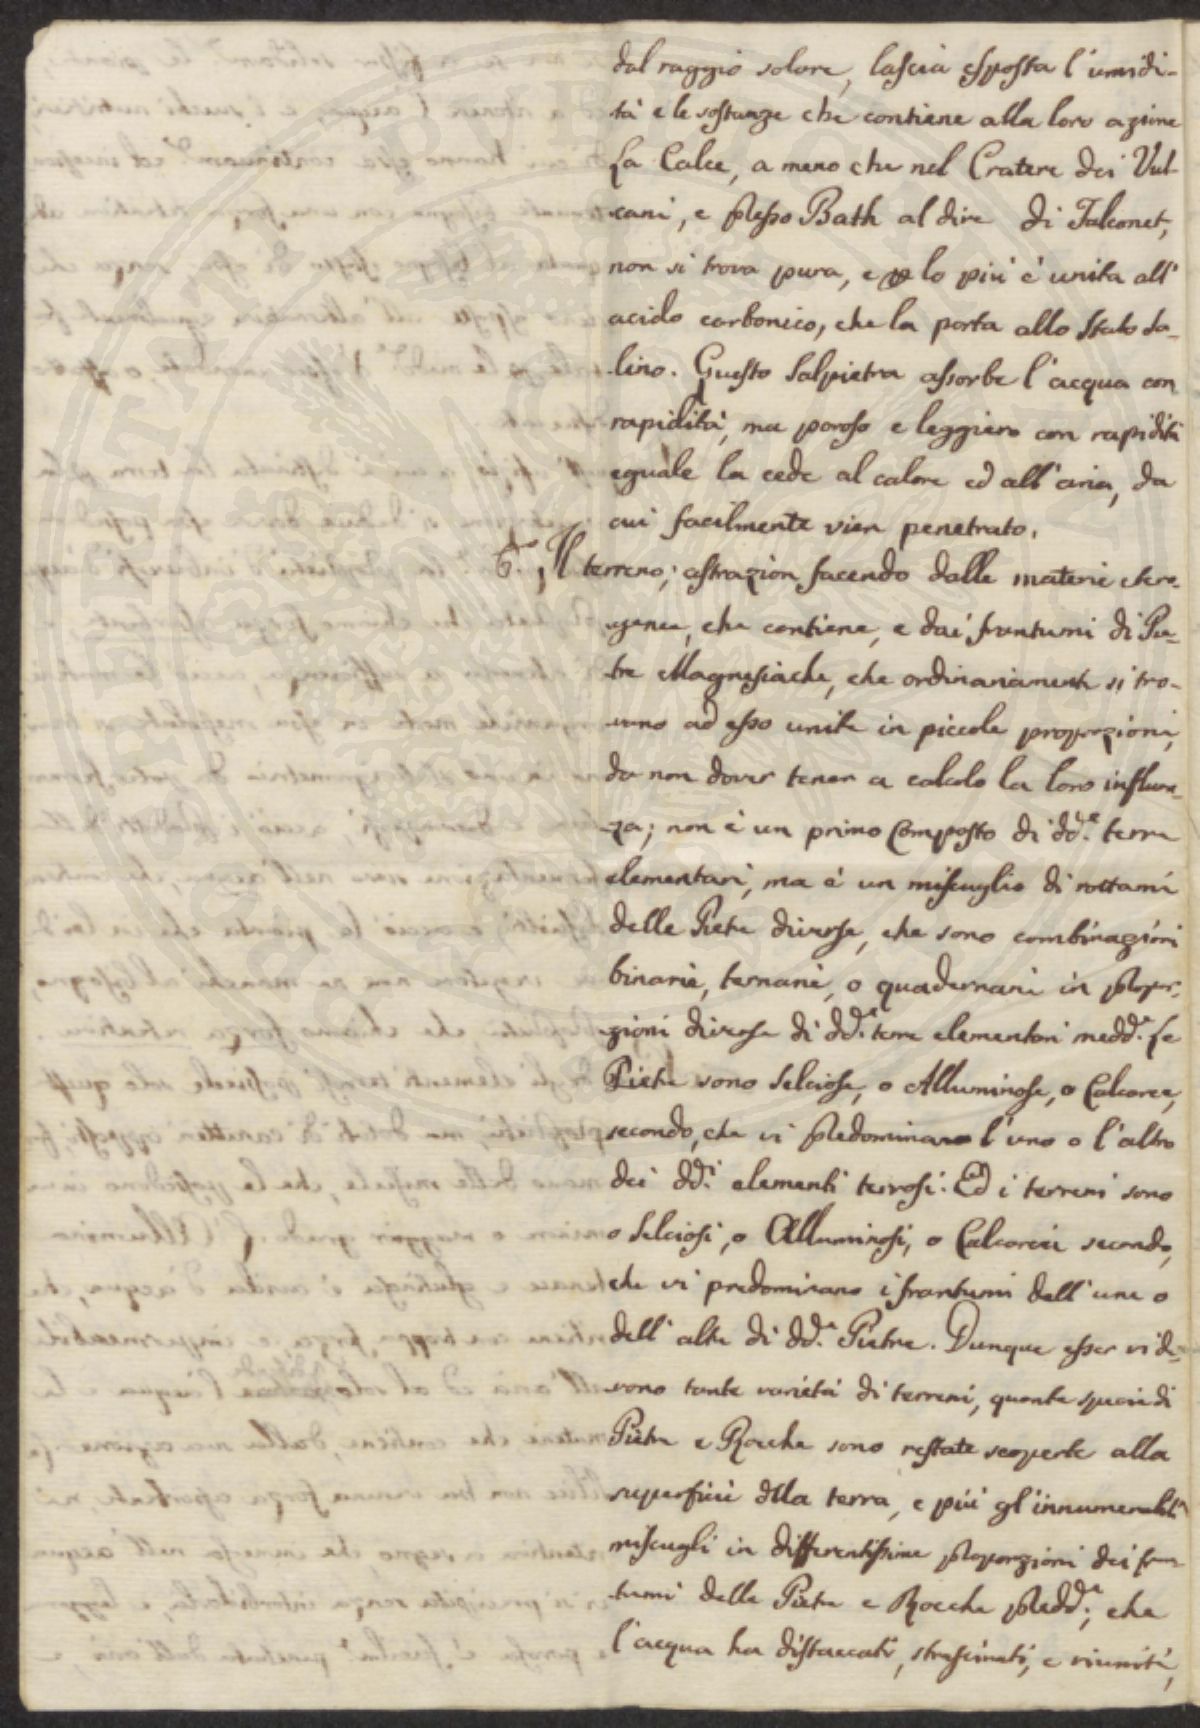 dal raggio solare, lascia esposta l'umidi-
tà e le sostanze che contiene alla loro azione
La Calce, a meno che nel Cratere dei Vul-
cani, e presso Bath al dire di Falconet,
non si trova pura, e p lo più è unita all'
acido carbonico, che la porta allo stato sa-
lino. Questo Salpietra assorbe l'acqua con
rapidità, ma poroso e leggiero con rapidità
eguale la cede al calore ed all'aria, da
cui facilmente vien penetrato.
6. Il terreno; astrazion facendo dalle materie etero-
genee, che contiene, e dai frantumi di Pie-
tre Magnesiache, che ordinariamente si tro-
vano ad esso unite in piccole proporzioni,
da non dover tener a calcolo la loro influen-
za; non è un primo Composto di dd.e terre
elementari, ma è un miscuglio di rottami
delle Pietre diverse, che sono combinazioni
binarie, ternarie, o quadernarie in propor-
zioni diverse di dd.e terre elementari medd.e Le
Pietre sono Selciose, o Alluminose, o Calcaree,
secondo, che vi predominano l'uno o l'altro
dei dd.i elementi terrosi. Ed i terreni sono
o Selciosi, o Alluminosi, o Calcarei secondo,
che vi predominano i frantumi dell'une o
dell'altre di dd.e Pietre. Dunque esser vi de-
vono tante varietà di terreni, quante specie di
Pietre e Rocche sono restate scoperte alla
superficie dlla terra, e più gl'innumerabili
miscugli in differentissime proporzioni dei fran-
tumi delle Pietre e Rocche predd.e, che
l'acqua ha distaccati, strascinati, e riuniti,